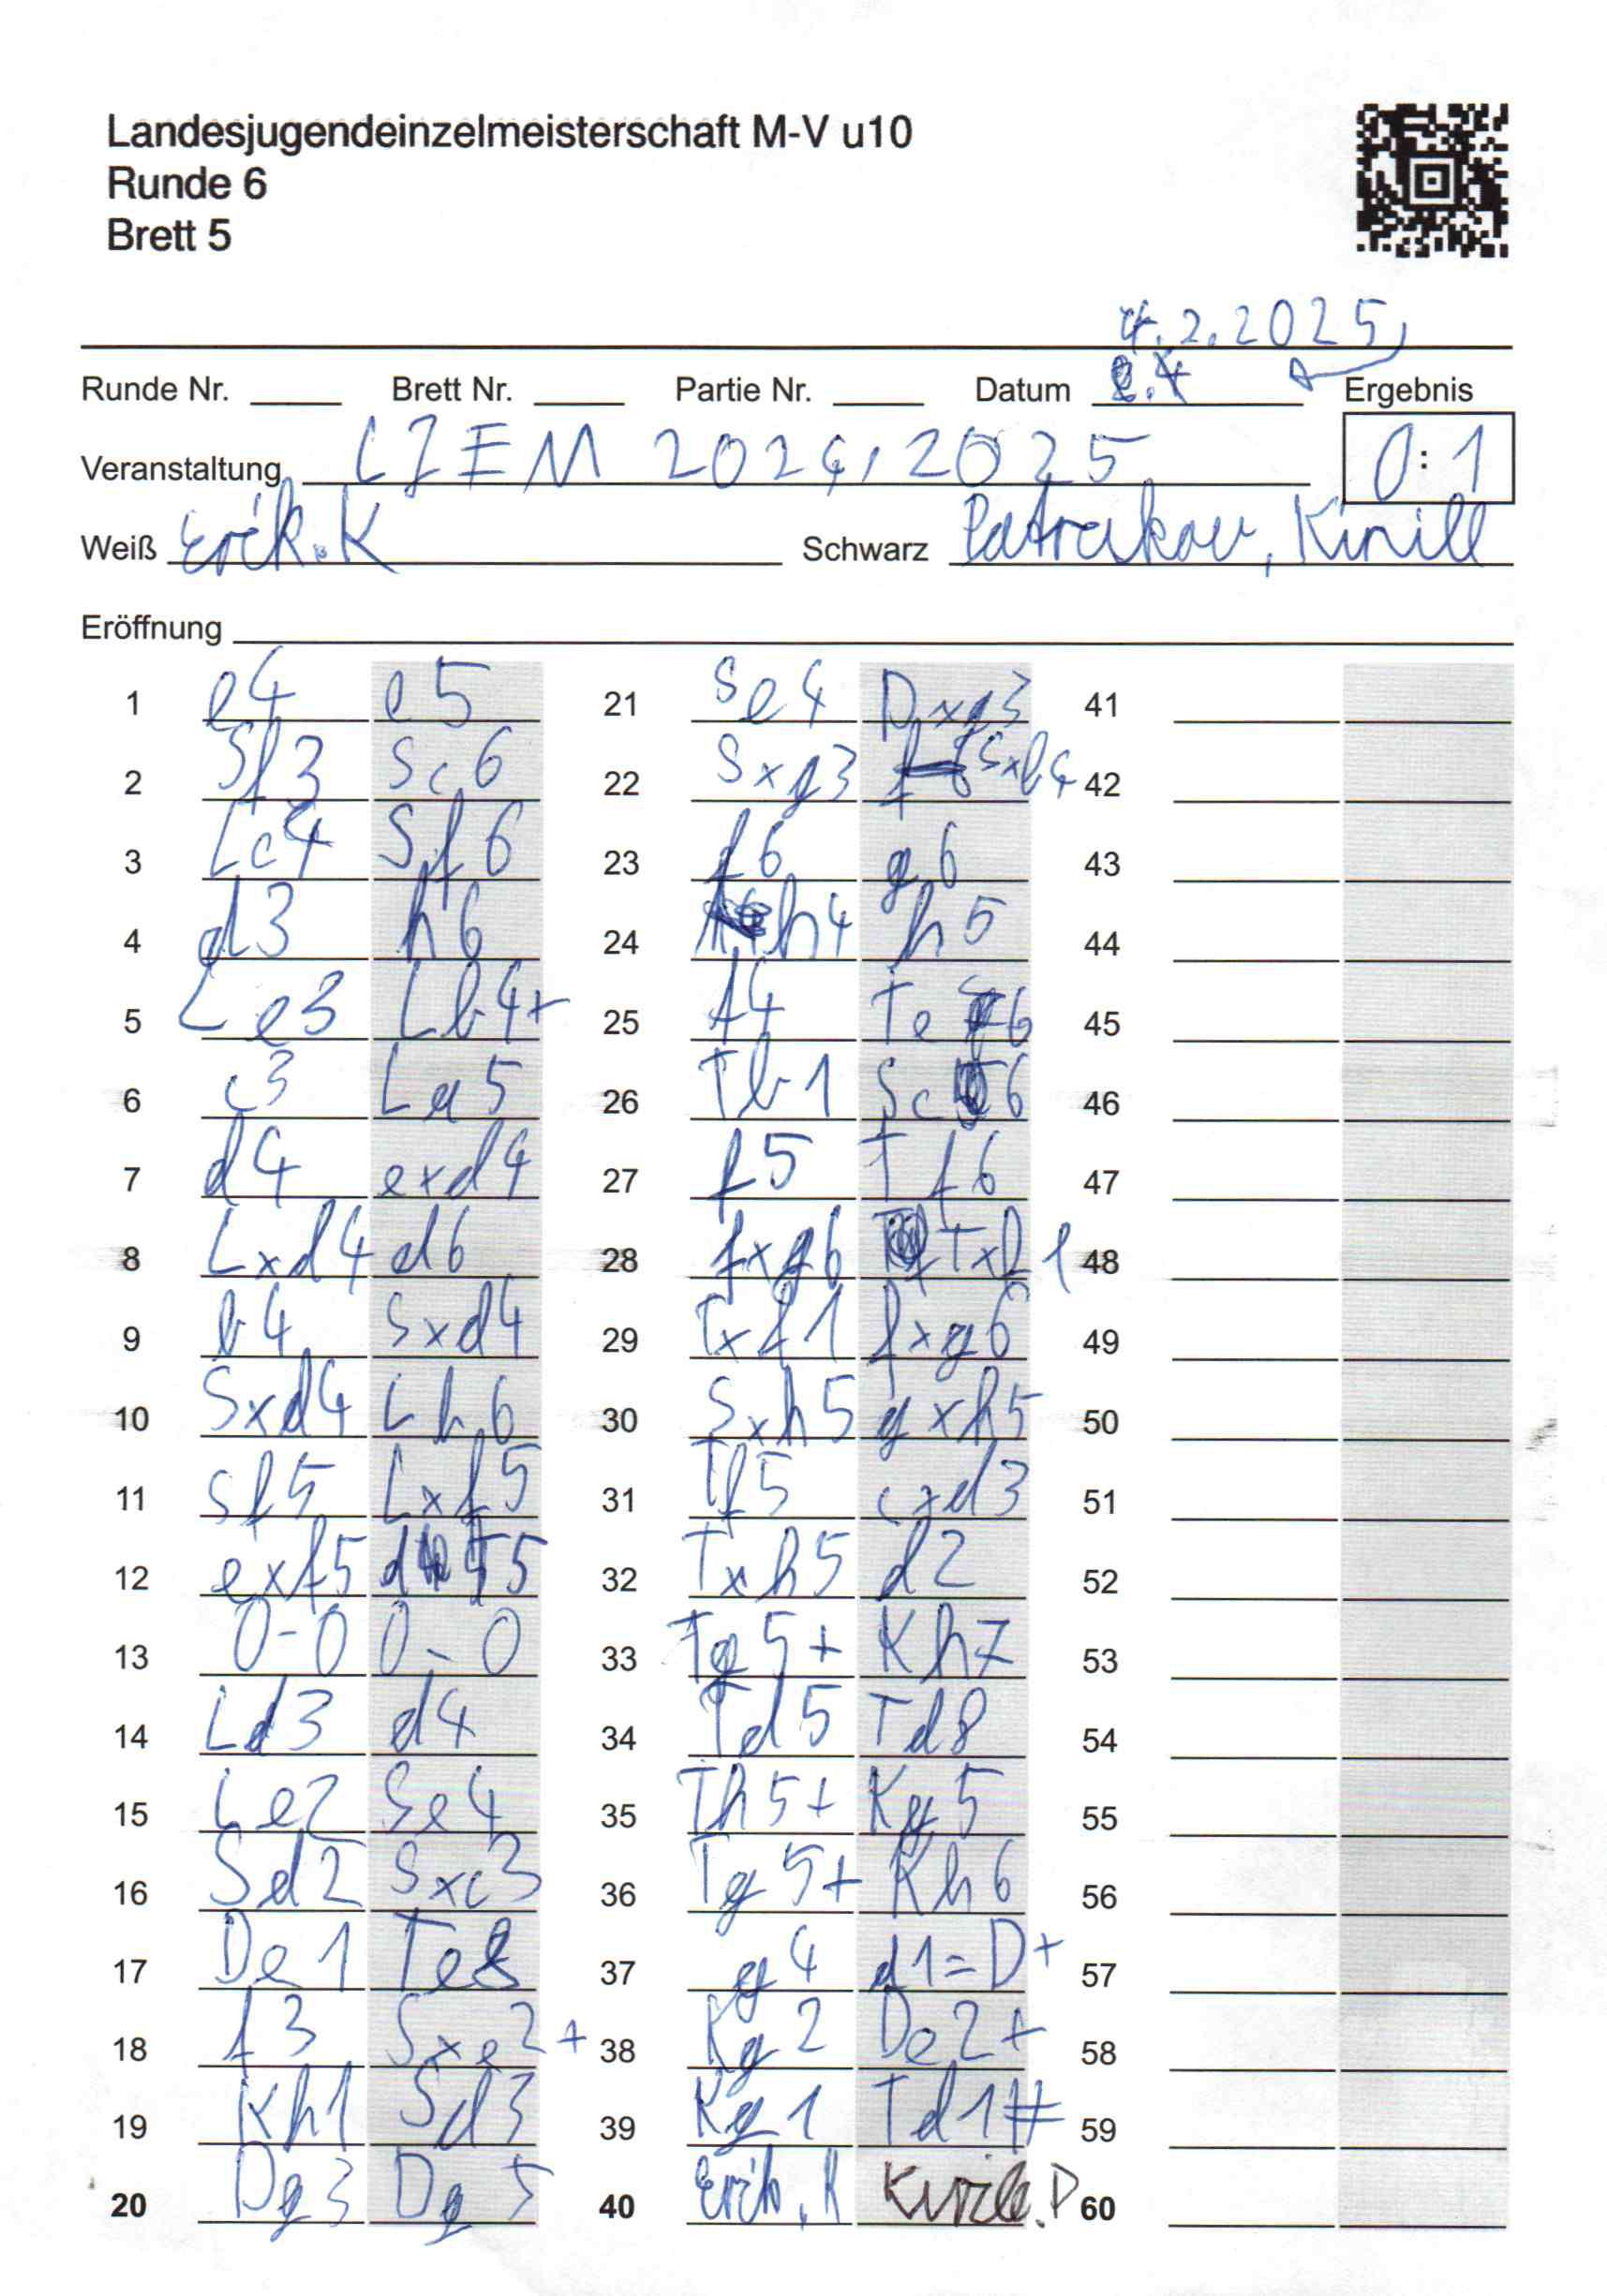 Landesjugendeinzelmeisterschaft M-V u10
Runde 6
Brett 5
4.2.2025
Runde Nr. Brett Nr. Partie Nr. Datum Ergebnis
Veranstaltung LJEM 2024/2025 0:1
Weiß Erik.K Schwarz Patrakov, Kirill
Eröffnung
1 e4 e5 21 Se4 Dxg3 41
2 Sf3 Sc6 22 Sxg3 Sxb4 42
3 Lc4 Sf6 23 f6 g6 43
4 d3 h6 24 h4 h5 44
5 Le3 Lb4+ 25 f4 Te6 45
6 c3 La5 26 Tb1 Sc6 46
7 d4 exd4 27 f5 Tf6 47
8 Lxd4 d6 28 fxg6 Txf1 48
9 b4 Sxd4 29 Txf1 fxg6 49
10 Sxd4 Lb6 30 Sxh5 gxh5 50
11 Sf5 Lxf5 31 Tf5 cxd3 51
12 exf5 d5 32 Txh5 d2 52
13 0-0 0-0 33 Tg5+ Kh7 53
14 Ld3 d4 34 Td5 Td8 54
15 Le2 Se4 35 Th5+ Kg5 55
16 Sd2 Sxc3 36 Tg5+ Kh6 56
17 De1 Te8 37 g4 d1=D+ 57
18 f3 Sxe2+ 38 Kg2 De2+ 58
19 Kh1 Sd3 39 Kg1 Td1# 59
20 Dg3 Dg5 40 Erik.K Kirill.P 60